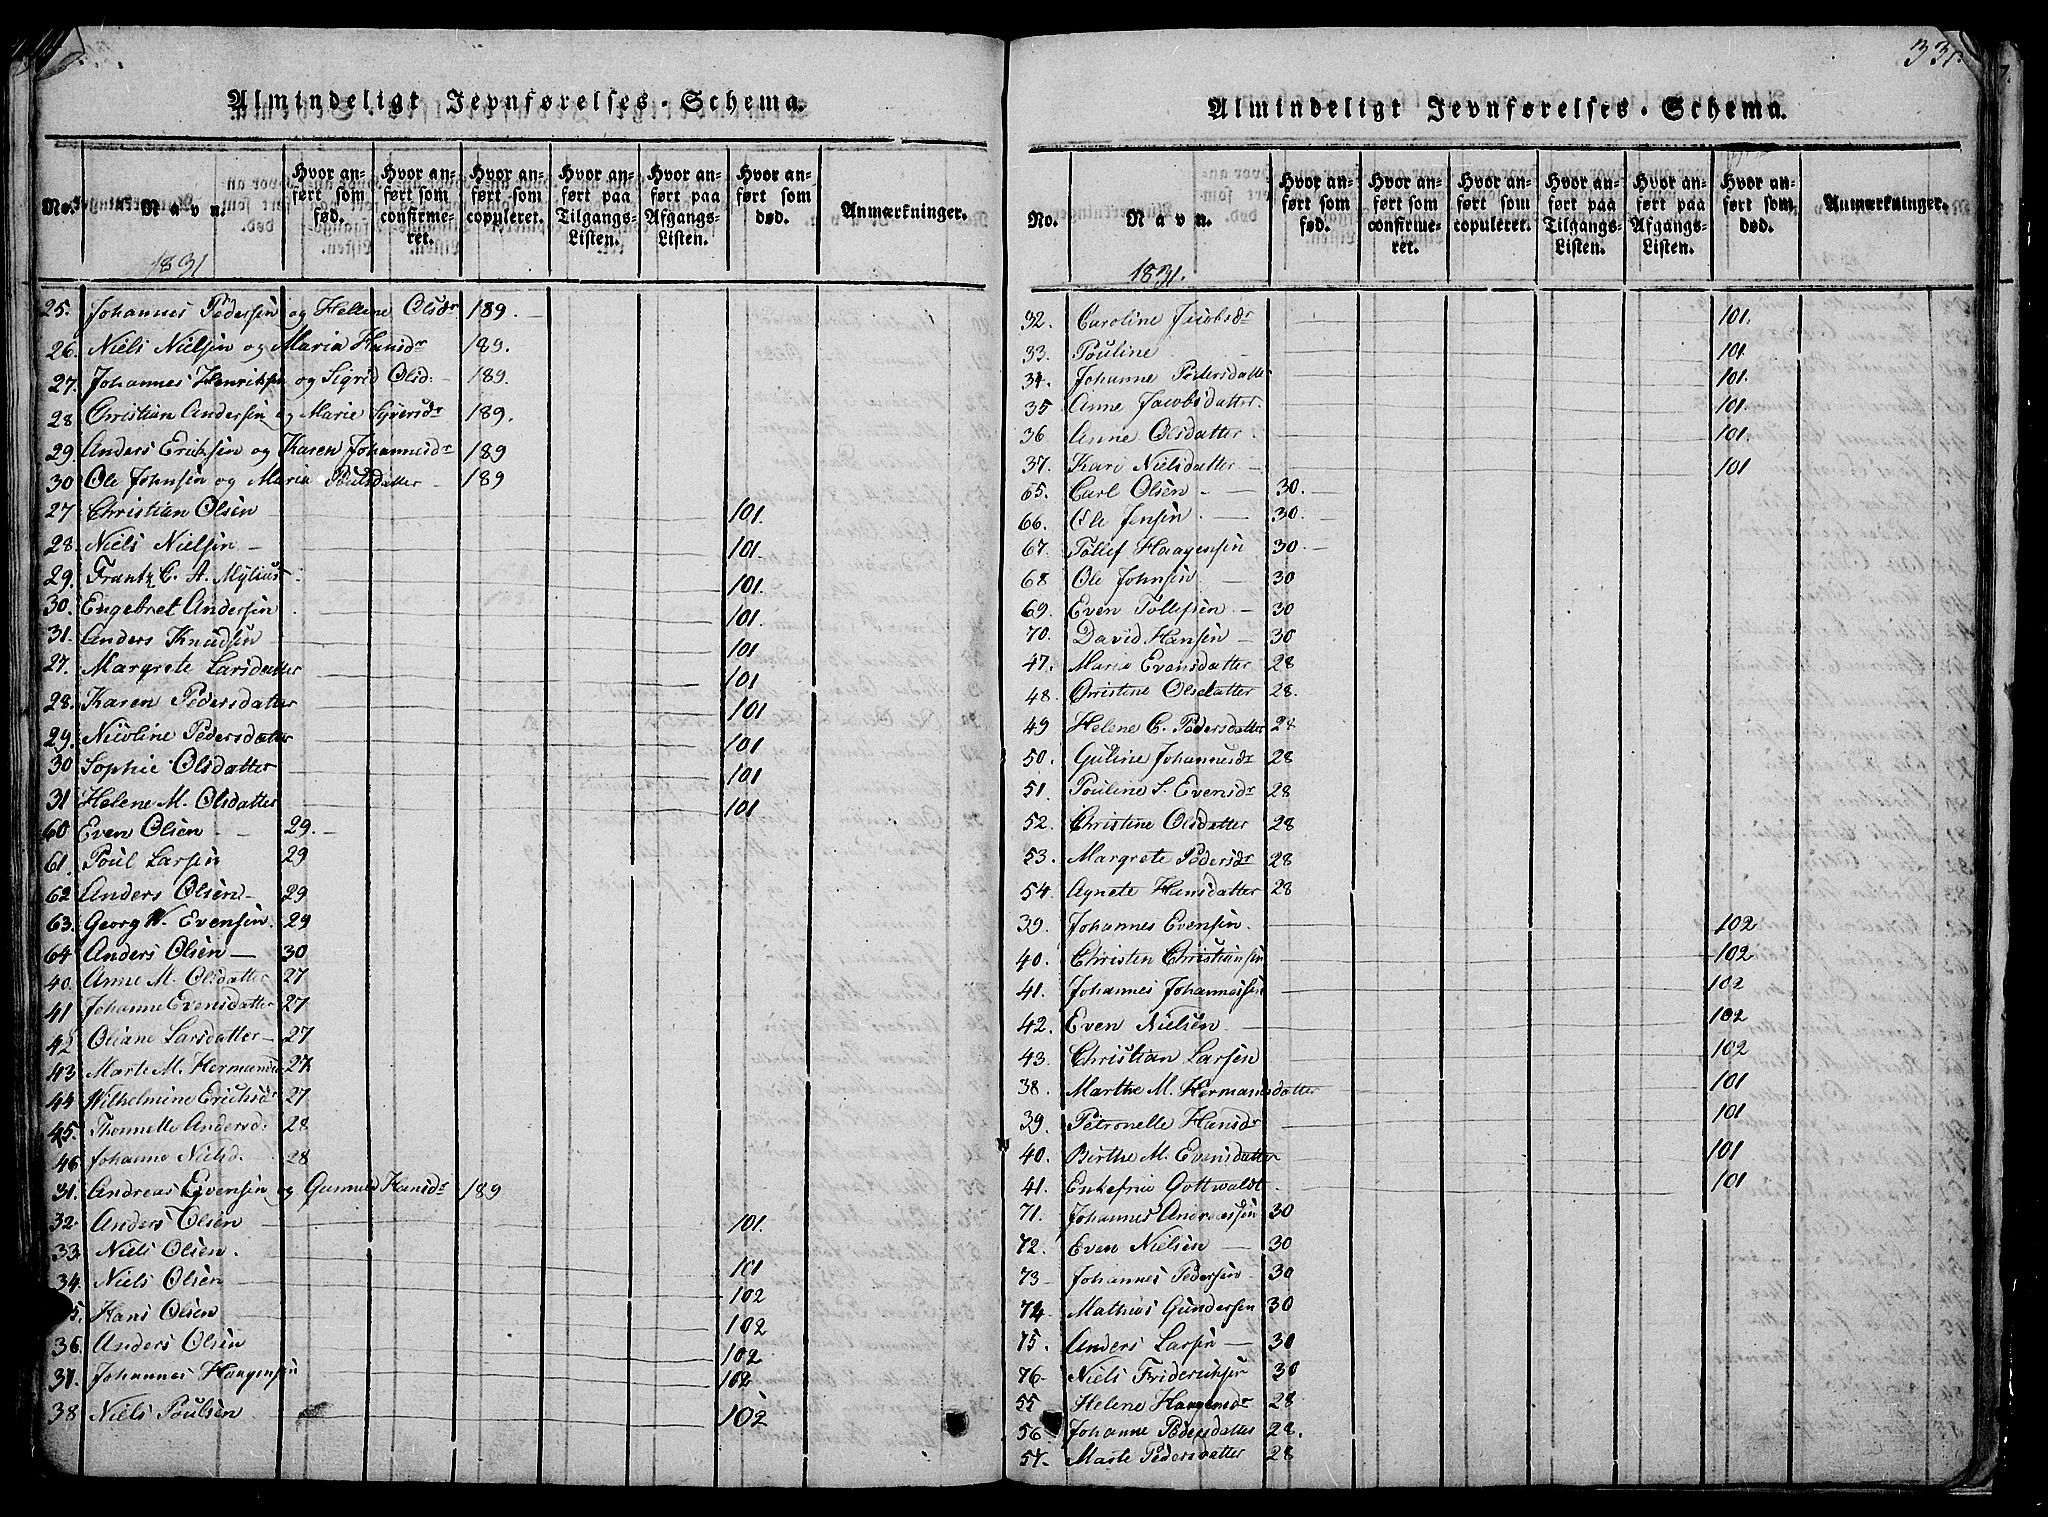 Almindeligt Jevnførelses-Schema.
No. Navn. Hvor anført som fød. Hvor anført som confirmeret. Hvor anført som copuleret. Hvor anført paa Tilgangs-Listen. Hvor anført paa Afgangs-Listen. Hvor anført som død. Anmærkninger.
1831
25. Johannes Pedersen og Hellene Olsdr 189.
26. Niels Nielsen og Maria Hansdr 189.
27. Johannes Henriksen og Sigrid Olsd: 189.
28 Christian Andersen og Marie Syversdr 189.
29. Anders Eriksen og Karen Johannesdr 189
30 Ole Johnsen og Maria Poulsdatter 189
27 Christian Olsen 101.
28. Niels Nielsen 101.
29. Frantz C. A. Mylius 101.
30. Engebret Andersen 101.
31. Anders Knudsen 101
27. Margrete Larsdatter 101
28. Karen Pedersdatter 101
29. Nicoline Pedersdatter 101
30 Sophie Olsdatter 101
31 Helene M. Olsdatter 101
60 Even Olsen 29.
61. Poul Larsen 29
62 Anders Olsen 29
63. Georg W. Evensen. 29
64 Anders Olsen 30
40. Anne M. Olsdatter 27
41 Johanne Evensdatter 27
42 Oliane Larsdatter 27
43 Marte M. Hermansd 27
44 Wilhelmine Erichsdr 27
45. Thonnette Andersd: 28
46. Johanne Nielsd. 28
31. Andreas Evensen og Gunnild Hansdr 189
32. Anders Olsen 101.
33. Niels Olsen. 101
34. Niels Olsen 102
35. Hans Olsen 102
36. Anders Olsen 102
37. Johannes Haagensen 102
38 Niels Poulsen 102
331.
Almindeligt Jevnførelses-Schema.
No. Navn. Hvor anført som fød. Hvor anført som confirmeret. Hvor anført som copuleret. Hvor anført paa Tilgangs-Listen. Hvor anført paa Afgangs-Listen. Hvor anført som død. Anmærkninger.
1831.
32. Caroline Jacobsdr 101.
33. Pouline 101
34. Johanne Pedersdatter 101.
35 Anne Jacobsdatter. 101.
36 Anne Olsdatter 101.
37. Kari Nielsdatter 101
65. Carl Olsen 30.
66. Ole Jensen 30.
67. Tollef Haagensen 30.
68 Ole Johnsen 30
69. Even Tollefsen 30
70. David Hansen 30
47. Maria Evensdatter 28
48. Christine Olsdatter 28.
49 Helene C. Pedersdatter 28
50. Guline Johannesdr 28
51. Pouline S. Evensdr 28
52. Christine Olsdatter 28
53. Margrete Pedersdr 28
54. Agnete Hansdatter 28
39. Johannes Evensen. 102
40. Christen Christiansen 102
41. Johannes Johannessen 102
42. Even Nielsen 102
43. Christian Larsen 102
38. Marthe M. Hermansdatter 101
39. Petronelle Hansdr 101
40. Birthe M. Evensdatter 101
41. Gottwaldt 101
71. Johannes Andreassen 30
72. Even Nielsen 30
73 Johannes Pedersen 30
74. Mathias Gundersen 30
75. Anders Larsen 30
76. Niels Frideriksen 30
55 Helene Haagensdr 28
56 Johanne Pedersdatter 28.
57. Marte Pedersdatter 28